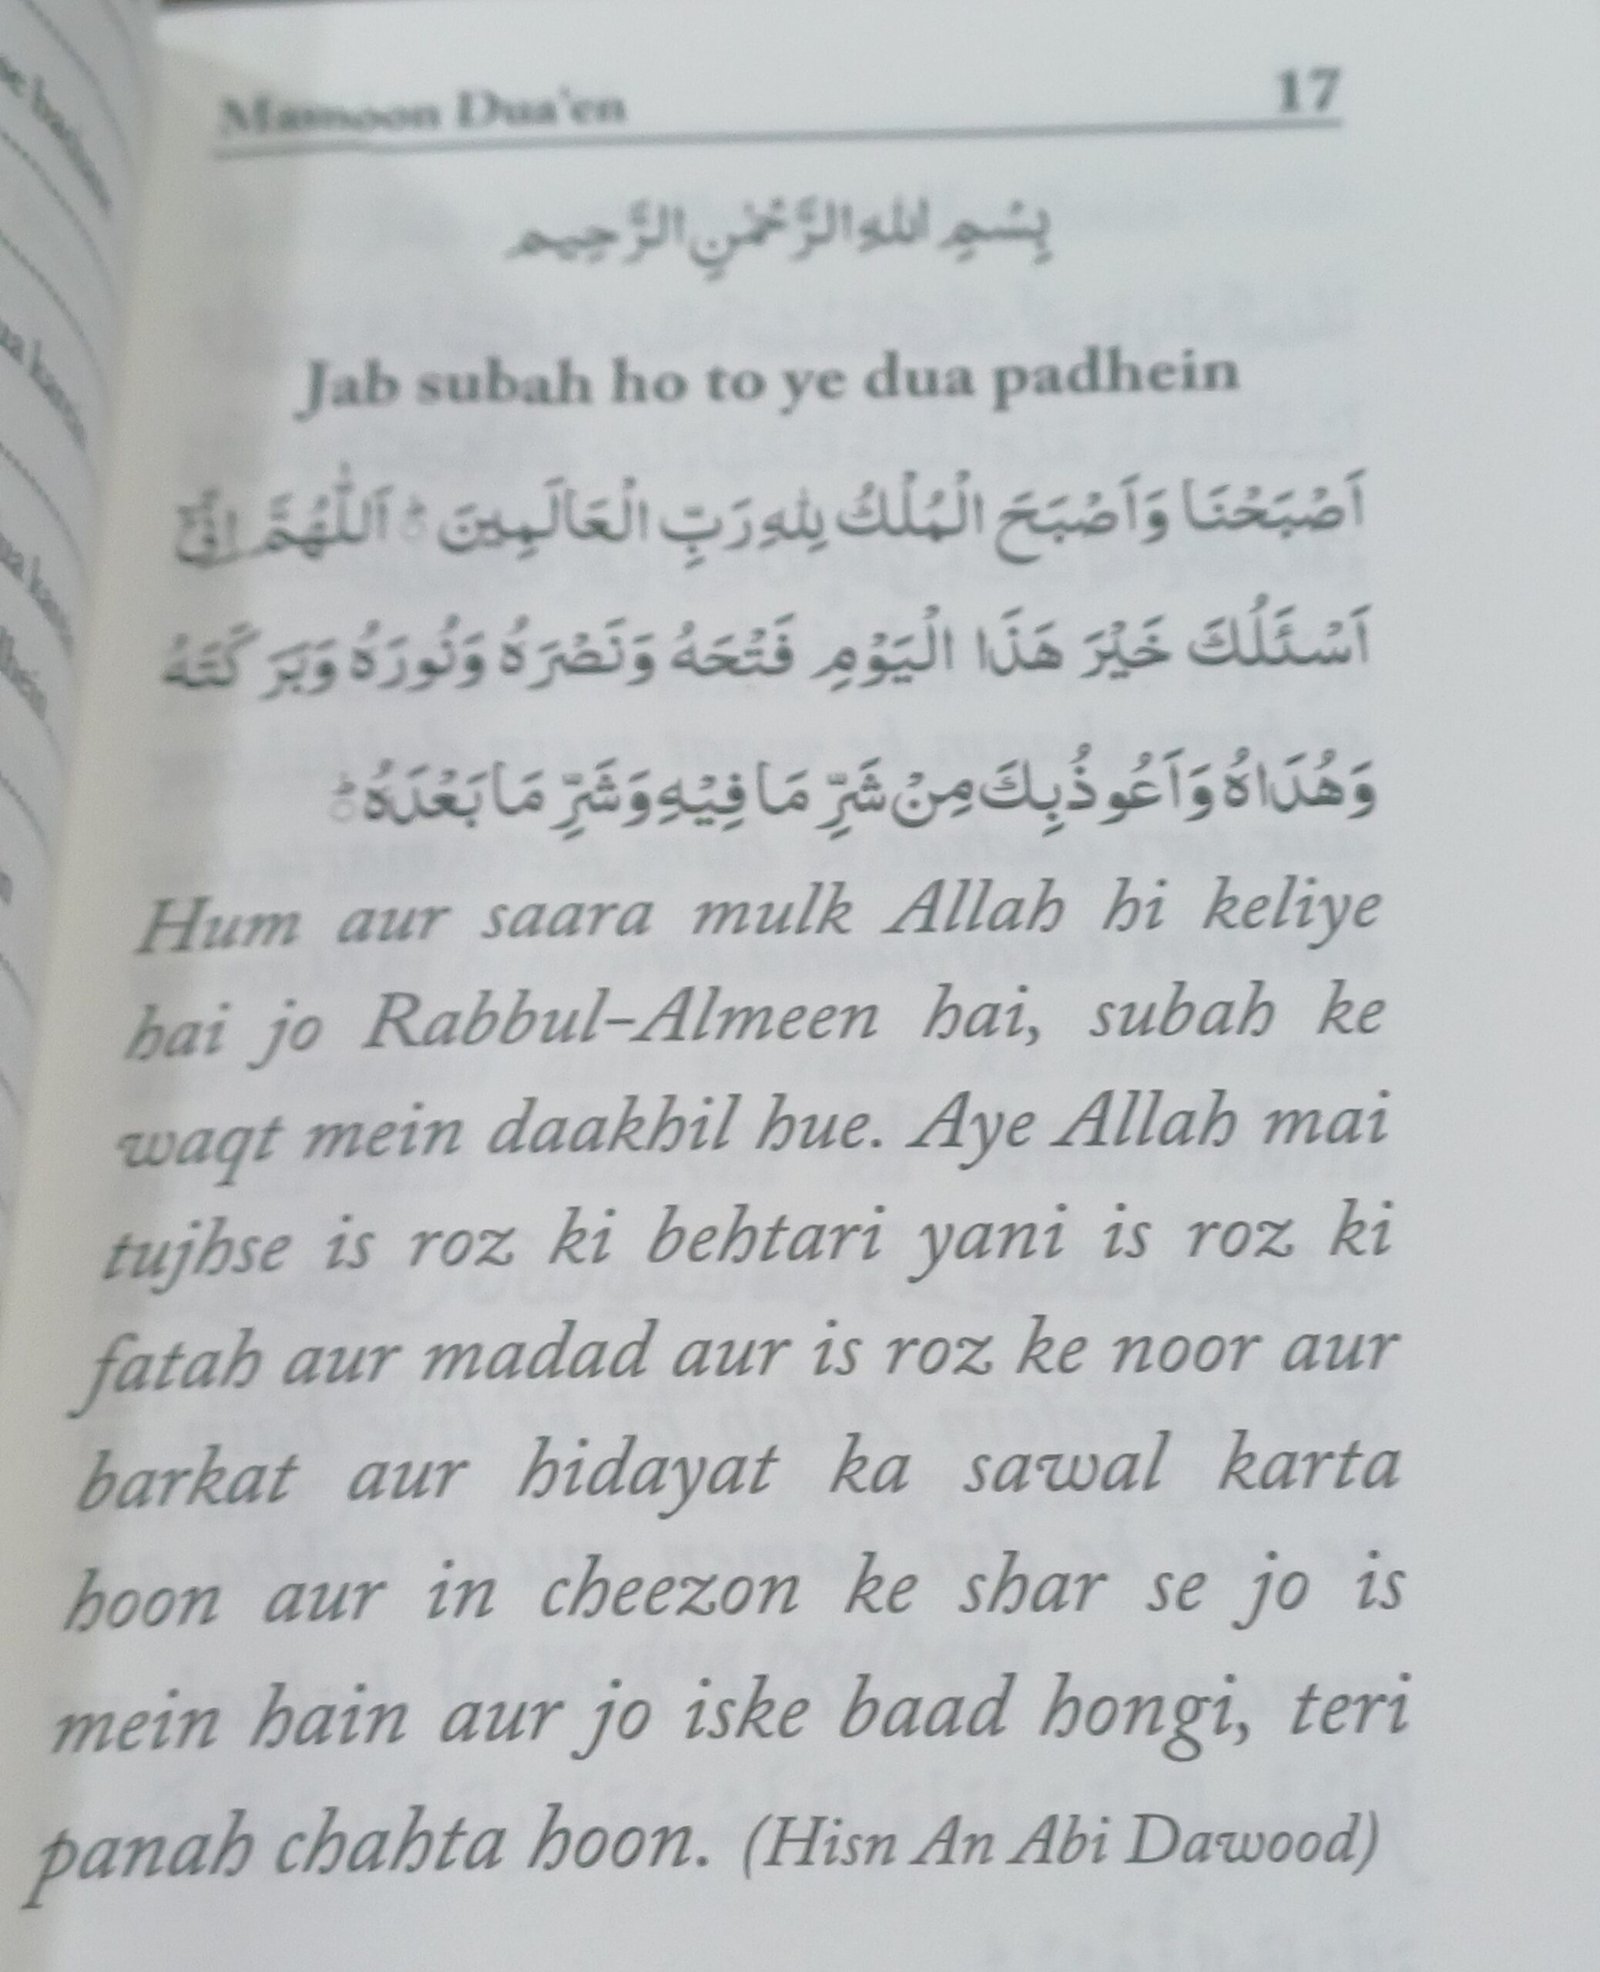 Masnoon Dua'en 17
بِسْمِ اللهِ الرَّحْمٰنِ الرَّحِيمِ
Jab subah ho to ye dua padhein
اَصْبَحْنَا وَاَصْبَحَ الْمُلْكُ لِلهِ رَبِّ الْعَالَمِينَ ؕ اَللّٰهُمَّ اِنِّیْ
اَسْئَلُكَ خَيْرَ هَذَا الْيَوْمِ فَتْحَهُ وَنَصْرَهُ وَنُورَهُ وَبَرَكَتَهُ
وَهُدَاهُ وَاَعُوذُبِكَ مِنْ شَرِّ مَا فِيْهِ وَشَرِّ مَا بَعْدَهُ ؕ
Hum aur saara mulk Allah hi keliye
hai jo Rabbul-Almeen hai, subah ke
waqt mein daakhil hue. Aye Allah mai
tujhse is roz ki behtari yani is roz ki
fatah aur madad aur is roz ke noor aur
barkat aur hidayat ka sawal karta
hoon aur in cheezon ke shar se jo is
mein hain aur jo iske baad hongi, teri
panah chahta hoon. (Hisn An Abi Dawood)